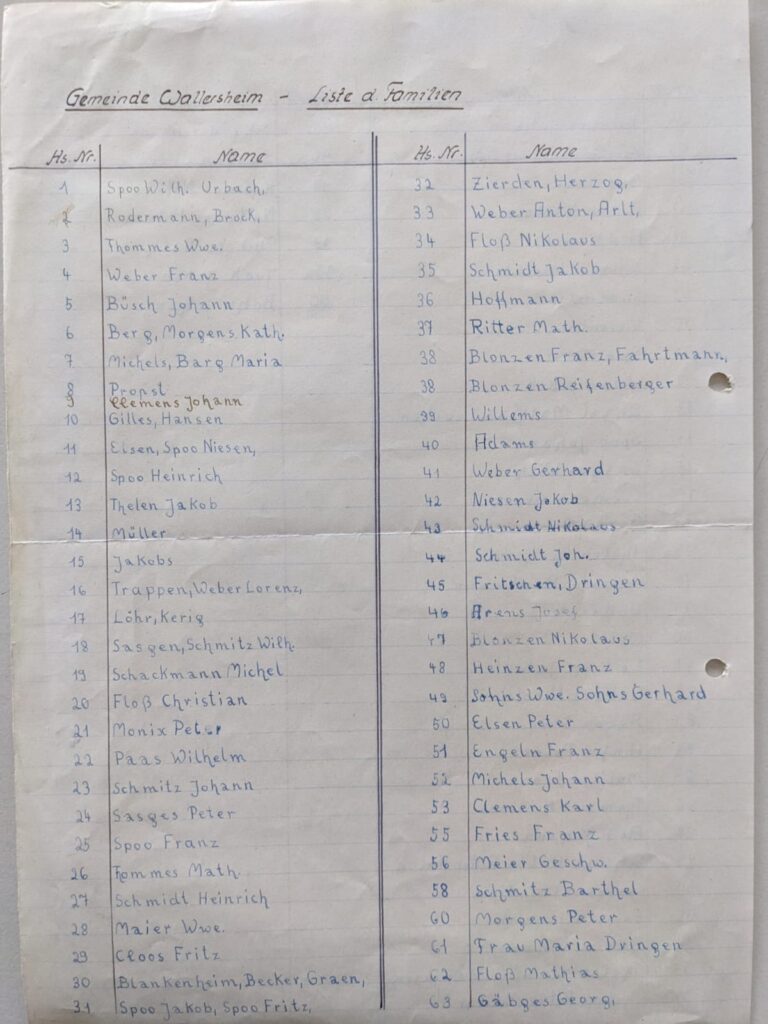 Gemeinde Wallersheim - Liste d. Familien
Hs. Nr. Name
1 Spoo Wilh. Urbach,
2 Rodermann, Brock,
3 Thommes Wwe.
4 Weber Franz
5 Büsch Johann
6 Berg, Morgens Kath.
7 Michels, Barg Maria
8 Propst
9 Clemens Johann
10 Gilles, Hansen
11 Elsen, Spoo Niesen,
12 Spoo Heinrich
13 Thelen Jakob
14 Müller
15 Jakobs
16 Trappen, Weber Lorenz,
17 Löhr, Kerig
18 Sasgen, Schmitz Wilh.
19 Schackmann Michel
20 Floß Christian
21 Monix Peter
22 Paas Wilhelm
23 Schmitz Johann
24 Sasges Peter
25 Spoo Franz
26 Tommes Math.
27 Schmidt Heinrich
28 Maier Wwe.
29 Cloos Fritz
30 Blankenheim, Becker, Graen,
31 Spoo Jakob, Spoo Fritz,
Hs. Nr. Name
32 Zierden, Herzog,
33 Weber Anton, Arlt,
34 Floß Nikolaus
35 Schmidt Jakob
36 Hoffmann
37 Ritter Math.
38 Blonzen Franz, Fahrtmann,
38 Blonzen Reifenberger
39 Willems
40 Adams
41 Weber Gerhard
42 Niesen Jakob
43 Schmidt Nikolaus
44 Schmidt Joh.
45 Fritschen, Dringen
46 Arens Josef
47 Blonzen Nikolaus
48 Heinzen Franz
49 Sohns Wwe. Sohns Gerhard
50 Elsen Peter
51 Engeln Franz
52 Michels Johann
53 Clemens Karl
55 Fries Franz
56 Meier Geschw.
58 Schmitz Barthel
60 Morgens Peter
61 Frau Maria Dringen
62 Floß Mathias
63 Gäbges Georg,